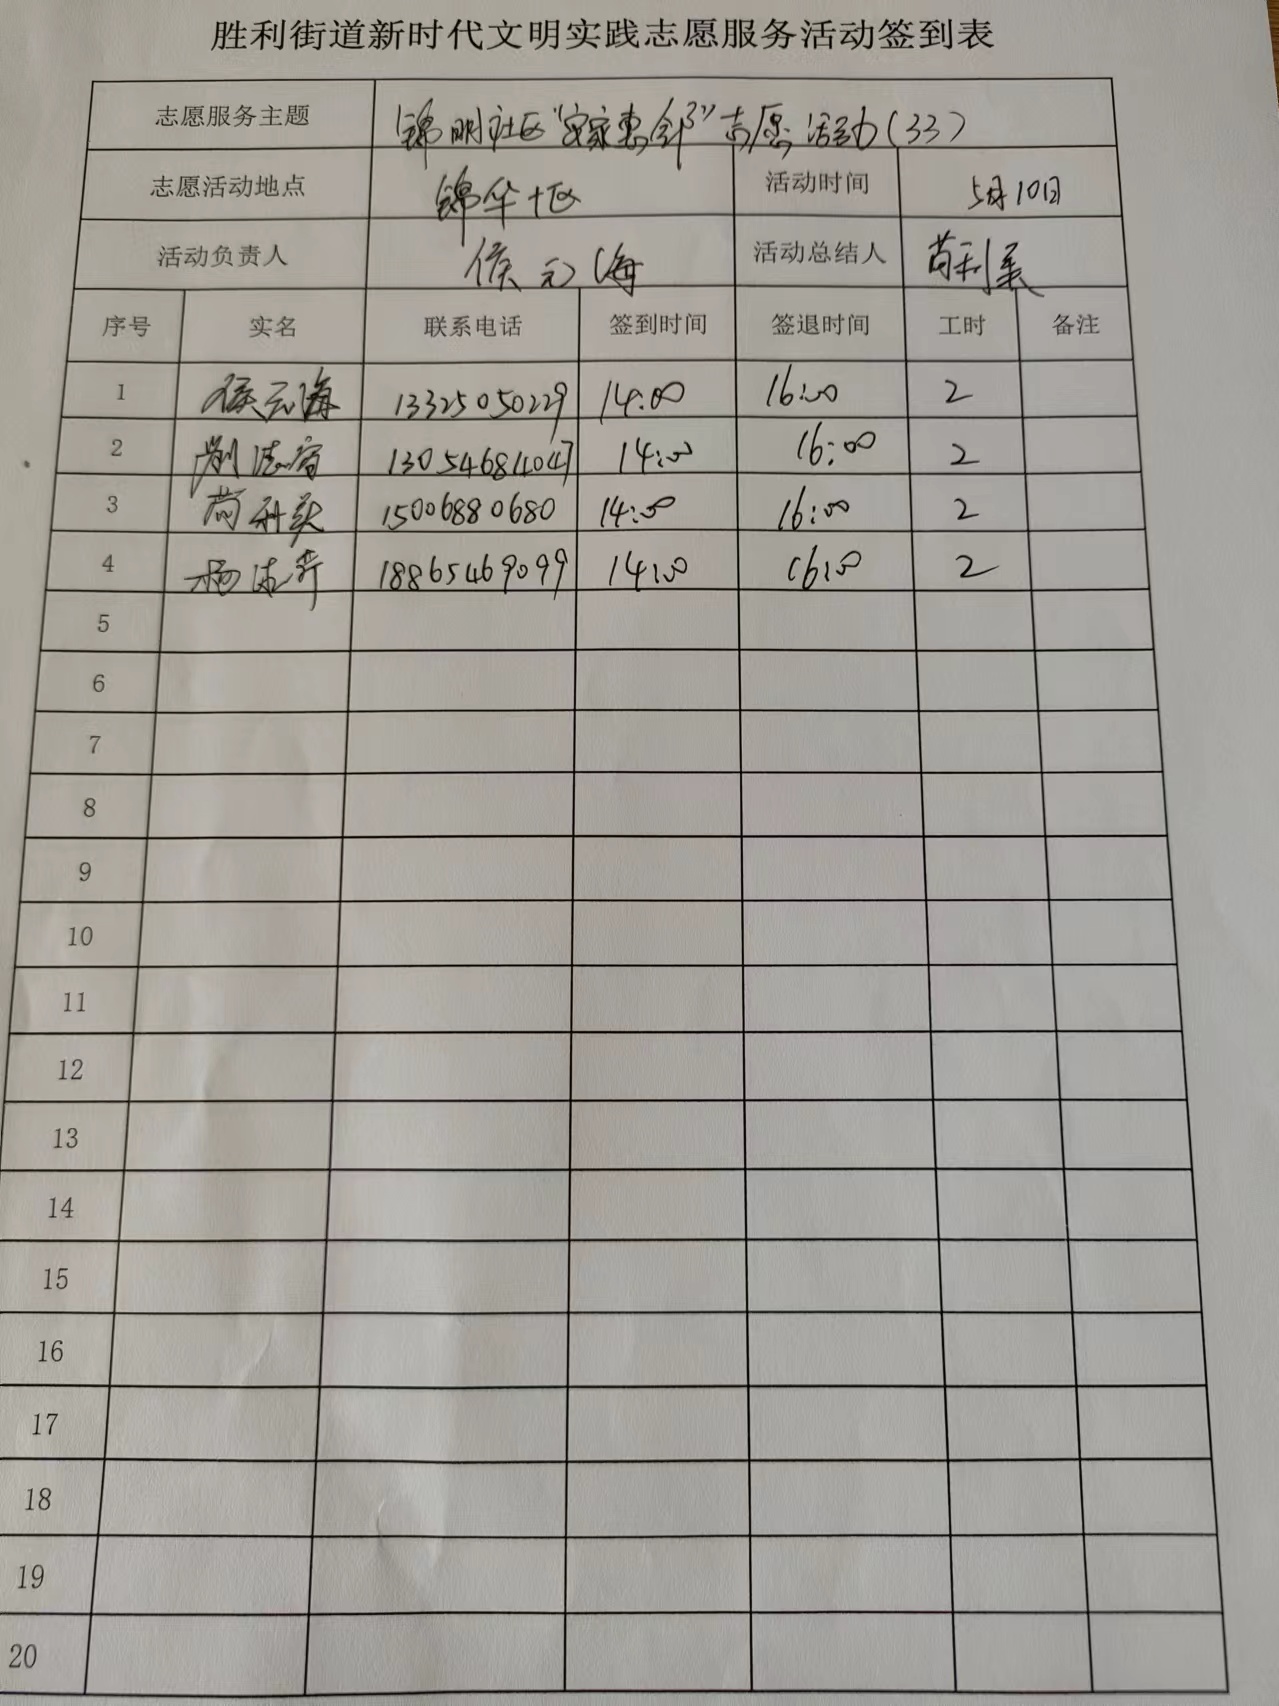 胜利街道新时代文明实践志愿服务活动签到表
志愿服务主题 锦明社区“安家惠邻”志愿活动(33)
志愿活动地点 锦华十区 活动时间 5月10日
活动负责人 侯元海 活动总结人 苟利美
序号 实名 联系电话 签到时间 签退时间 工时 备注
1 侯元海 13325050229 14:00 16:00 2
2 13054684047 14:00 16:00 2
3 15006880680 14:00 16:00 2
4 杨 18865469099 14:00 16:00 2
5
6
7
8
9
10
11
12
13
14
15
16
17
18
19
20